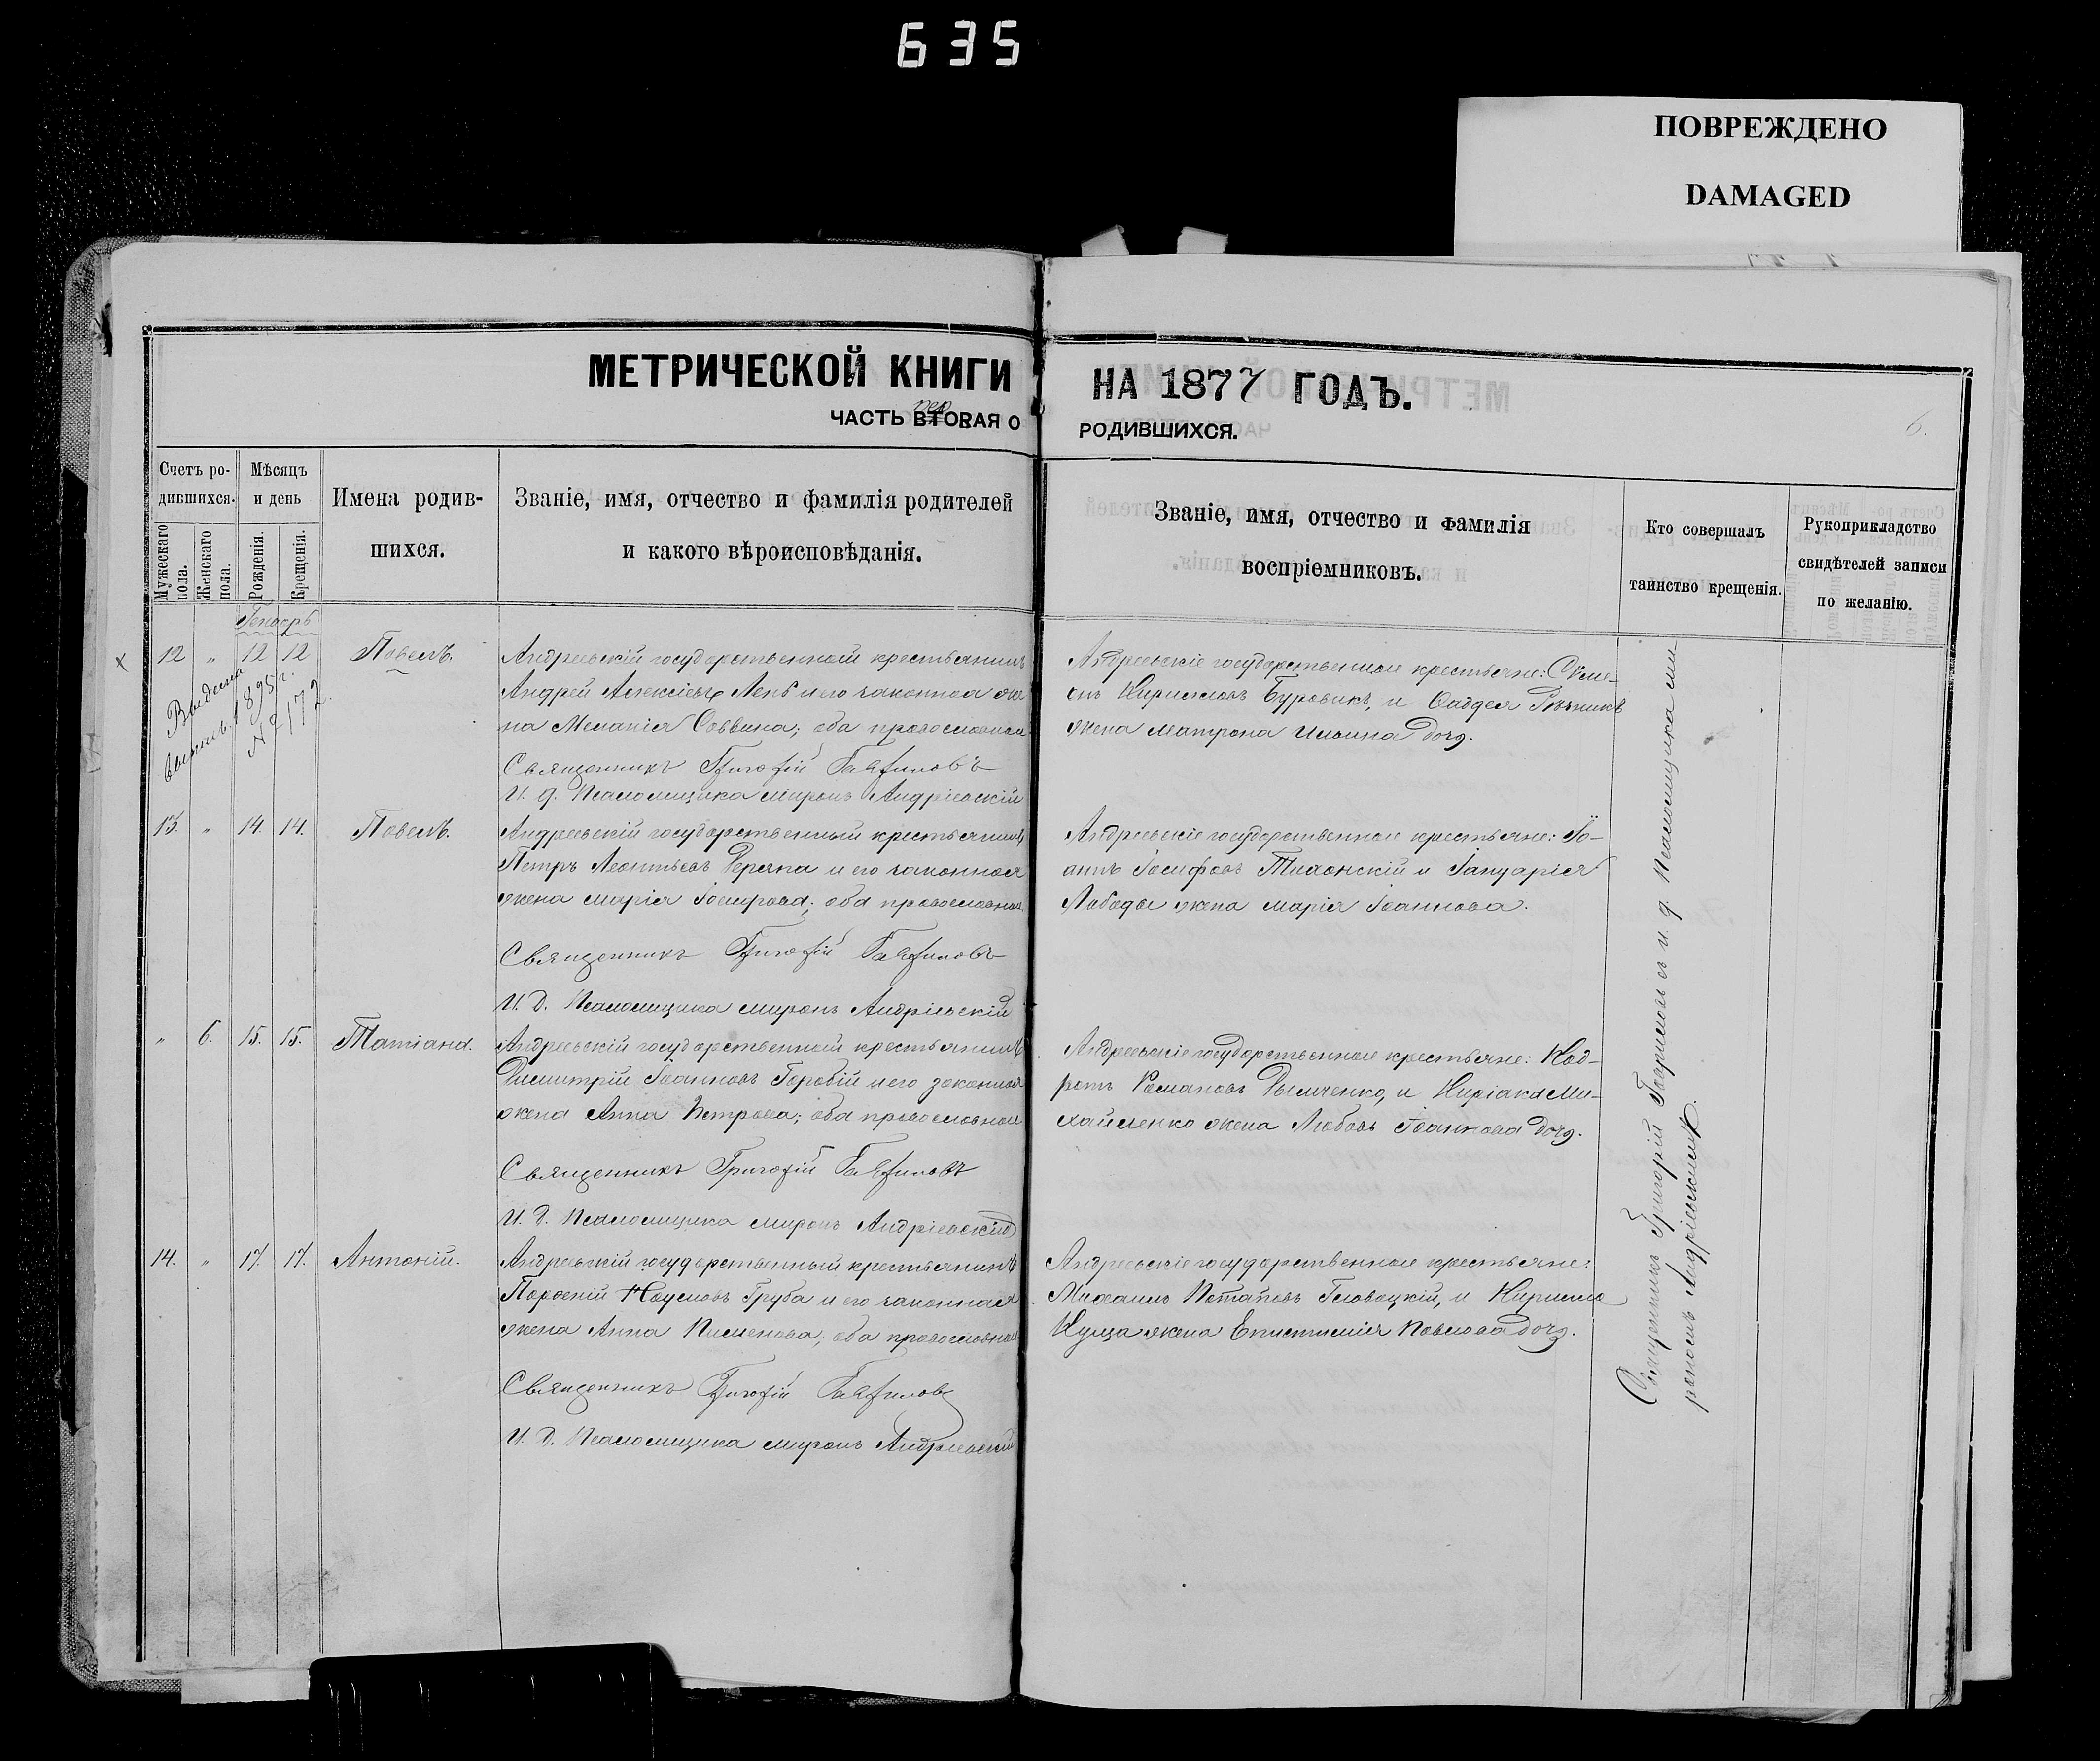 635
ПОВРЕЖДЕНО
DAMAGED
МЕТРИЧЕСКОЙ КНИГИ НА 1877 ГОДЪ.
ЧАСТЬ ВТОРАЯ О РОДИВШИХСЯ.
пер
6.
Счетъ ро-
дившихся.
Мужескаго пола.
Женскаго пола.
Мѣсяцъ
и день
Рожденія.
Крещенія.
Имена родив-
шихся.
Званіе, имя, отчество и фамилія родителей
и какого вѣроисповѣданія.
Званіе, имя, отчество и фамилія
воспріемниковъ.
Кто совершалъ
таинство крещенія.
Рукоприкладство
свидѣтелей записи
по желанію.
Генварь
12 " 12 12 Павелъ.
Выдана
1895 г.
№ 172.
Андреевскій государственный крестьянинъ
Андрей Алексіевъ Лень и его законная же
на Меланія Саввина; оба православныи
Священникъ Григорій Гавриловъ
И. д. Псаломщика Миронъ Андріевскій
Андреевскіе государственные крестьяне: Симе-
онъ Кирилловъ Буровикъ, и Фаддея
жена Матрона Ильина дочь.
13. " 14. 14. Павелъ.
Андреевскій государственный крестьянинъ
Петръ Леонтьевъ и его законная
жена Марія Іосифова; оба православныи
Священникъ Григорій Гавриловъ
И. д. Псаломщика Миронъ Андріевскій
Андреевскіе государственные крестьяне: Іо-
аннъ Іосифовъ Тихонскій и Іануарія
Лободы жена Марія Іоаннова.
" 6. 15. 15. Татіана.
Андреевскій государственный крестьянинъ
Димитрій Іоанновъ Горобій и его законная
жена Анна Петрова; оба православныи
Священникъ Григорій Гавриловъ
И. д. Псаломщика Миронъ Андріевскій
Андреевскіе государственные крестьяне: Код-
ратъ Романовъ и Киріака Ми-
хайленко жена Любовь Іоаннова дочь.
14. " 17. 17. Антоній.
Андреевскій государственный крестьянинъ
Парфеній Наумовъ Груба и его законная
жена Анна Пименова; оба православныи
Священникъ Григорій Гавриловъ
И. д. Псаломщика Миронъ Андріевскій
Андреевскіе государственные крестьяне:
Михаилъ Потаповъ Головацкій, и Кирилла
Куща жена Епистимія Павлова дочь.
Священникъ Григорій Гавриловъ съ и. д. Псаломщика Ми-
рономъ Андріевскимъ.